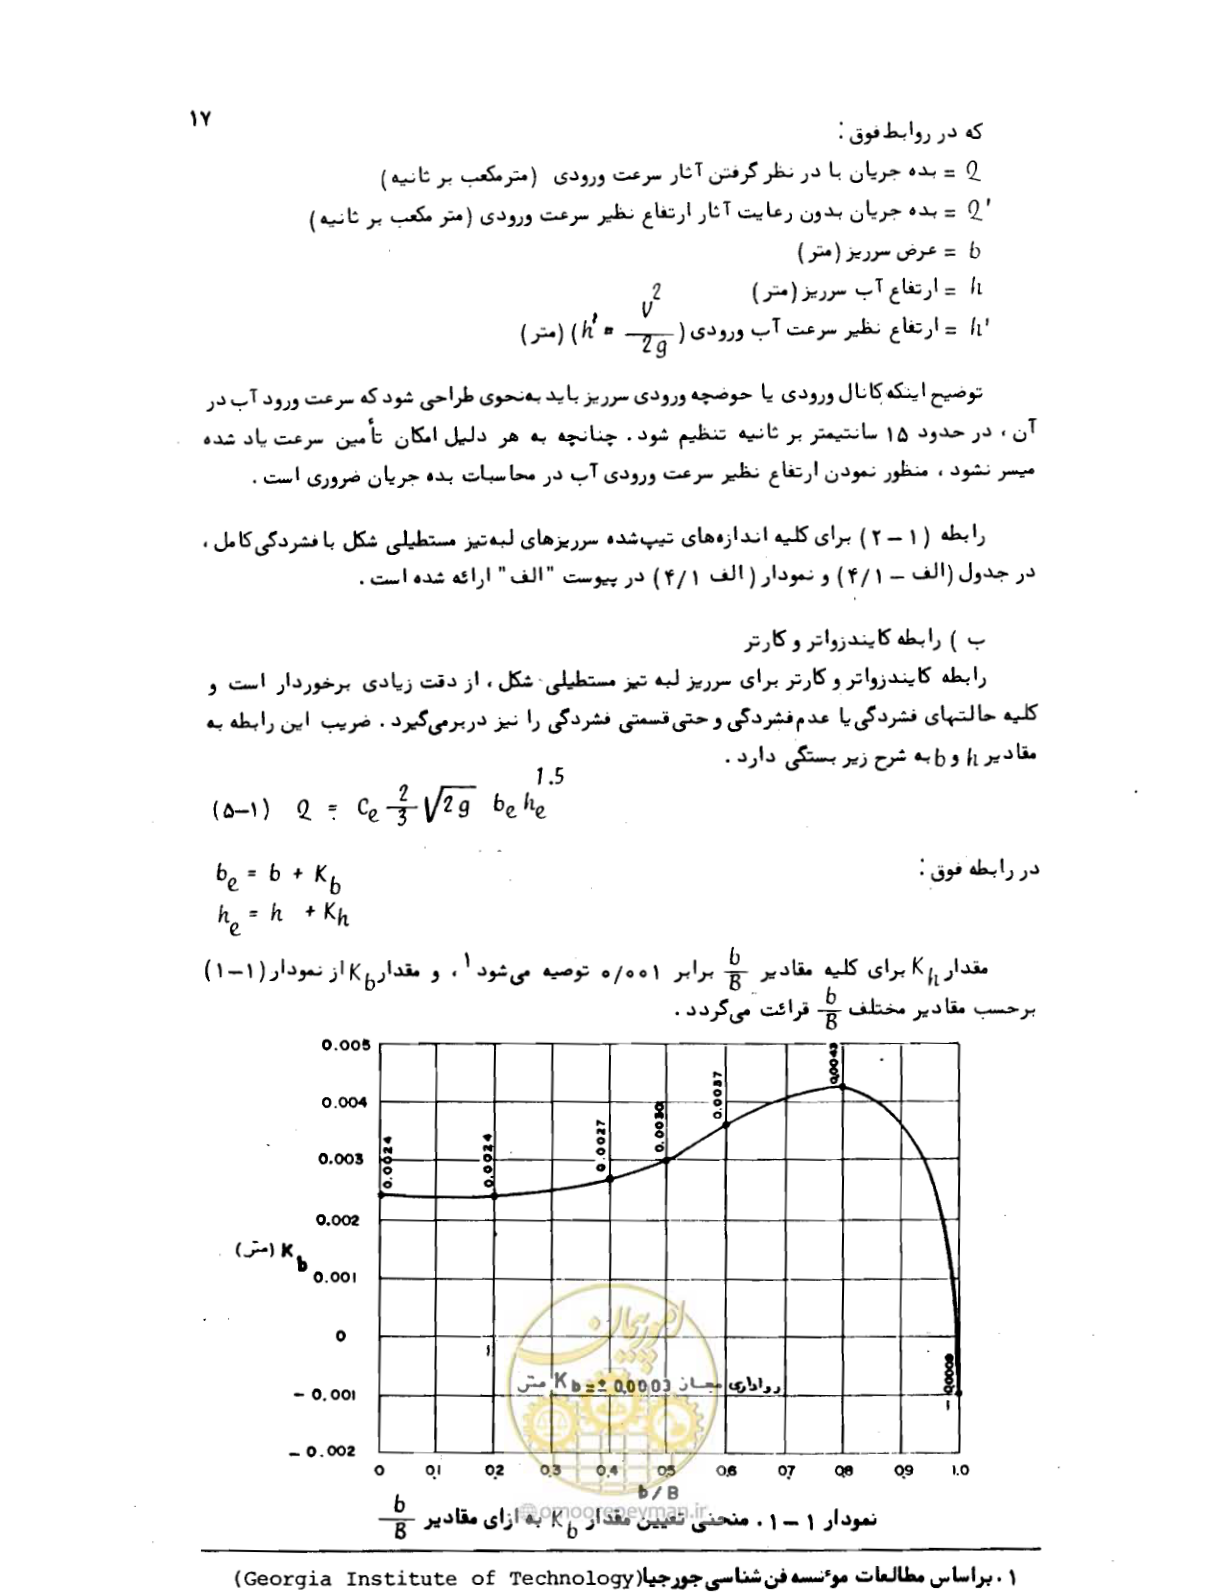 ۱۷
که در روابط فوق :
Q = بده جریان با در نظر گرفتن آثار سرعت ورودی (مترمکعب بر ثانیه)
Q' = بده جریان بدون رعایت آثار ارتفاع نظیر سرعت ورودی (متر مکعب بر ثانیه)
b = عرض سرریز (متر)
h = ارتفاع آب سرریز (متر)
h' = ارتفاع نظیر سرعت آب ورودی (h' = v²/2g) (متر)
توضیح اینکه کانال ورودی یا حوضچه ورودی سرریز باید به‌نحوی طراحی شود که سرعت ورود آب در
آن ، در حدود ۱۵ سانتیمتر بر ثانیه تنظیم شود . چنانچه به هر دلیل امکان تأمین سرعت یاد شده
میسر نشود ، منظور نمودن ارتفاع نظیر سرعت ورودی آب در محاسبات بده جریان ضروری است .
رابطه (۱ – ۲) برای کلیه اندازه‌های تیپ‌شده سرریزهای لبه‌تیز مستطیلی شکل با فشردگی کامل ،
در جدول (الف – ۴/۱) و نمودار (الف ۴/۱) در پیوست "الف" ارائه شده است .
ب ) رابطه کایندزواتر و کارتر
رابطه کایندزواتر و کارتر برای سرریز لبه تیز مستطیلی شکل ، از دقت زیادی برخوردار است و
کلیه حالتهای فشردگی یا عدم‌فشردگی و حتی قسمتی فشردگی را نیز دربرمی‌گیرد . ضریب این رابطه به
مقادیر h و b به شرح زیر بستگی دارد .
(۱–۵) Q = Ce 2/3 √2g be he^1.5
در رابطه فوق :
be = b + Kb
he = h + Kh
مقدار Kh برای کلیه مقادیر b/B برابر ۰/۰۰۱ توصیه می‌شود۱ ، و مقدار Kb از نمودار (۱–۱)
برحسب مقادیر مختلف b/B قرائت می‌گردد .
0.005
0.004
0.003
0.002
0.001
0
– 0.001
– 0.002
Kb (متر)
0.0024
0.0024
0.0027
0.0030
0.0037
0.0043
– 0.0009
رواداری مجاز Kb = ± 0.0003 متر
امور پیمان
0 0.1 0.2 0.3 0.4 0.5 0.6 0.7 0.8 0.9 1.0
b / B
@omoorepeyman.ir
نمودار ۱ – ۱ . منحنی تعیین مقدار Kb به ازای مقادیر b/B
۱ . براساس مطالعات موٴسسه فن شناسی جورجیا (Georgia Institute of Technology)